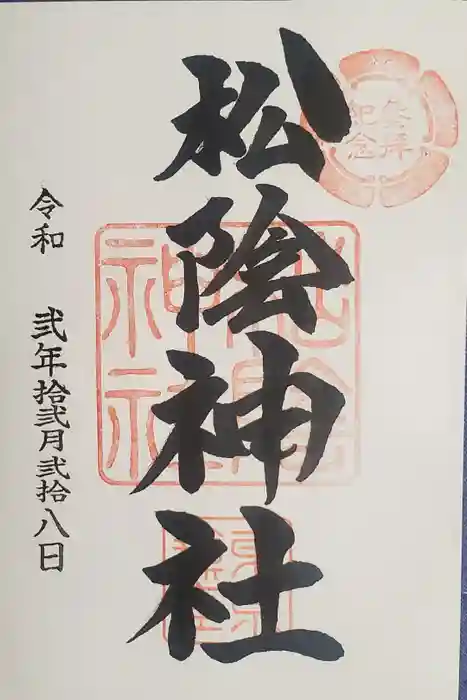 参拝
紀念
松陰神社
松陰
神社
令和 弐年拾弐月弐拾八日